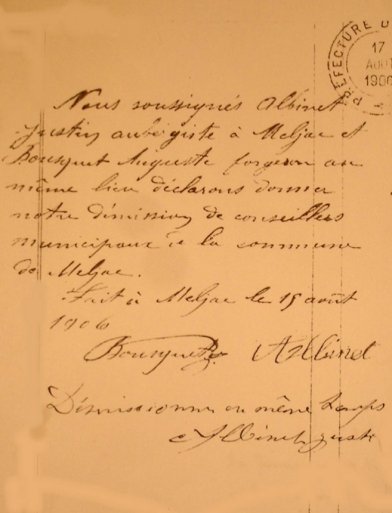 PREFECTURE D
17
AOUT
1906
Nous soussignés Albinet
Justin aubergiste à Meljac et
Bousquet Auguste forgeron au
même lieu déclarons donner
notre démission de conseillers
municipaux de la commune
de Meljac.
Fait à Meljac le 15 août
1906
Bousquet Albinet
Démissionne en même temps
Albinet Justin